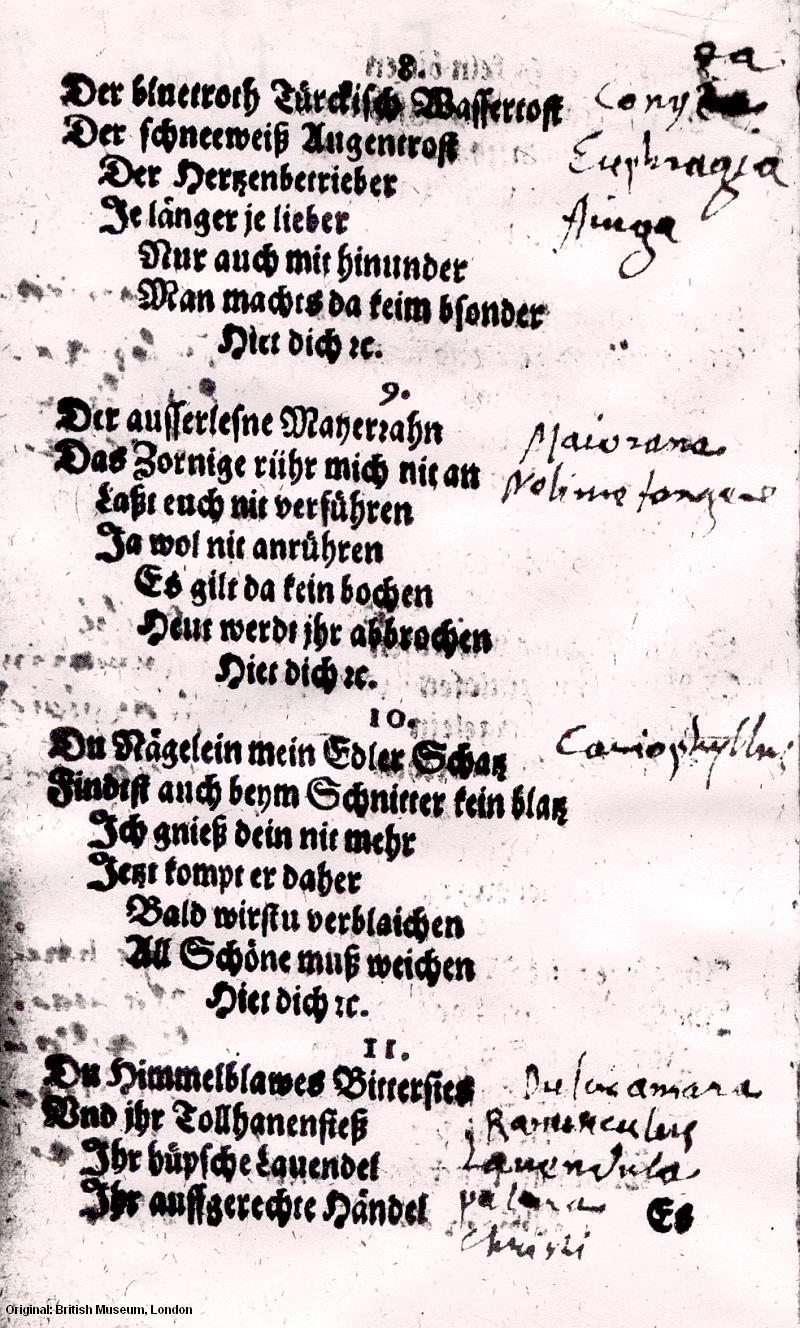 8.
Der bluetroth Türckisch Wassertost Cony
Der schneeweiß Augentrost Euphragia
Der Hertzenbetrieber
Je länger je lieber Aiuga
Nur auch mit hinunder
Man machts da keim bsonder
Hiet dich ꝛc.
9.
Der ausserlesne Mayerzahn Maiorana
Das Zornige rühr mich nit an Noli me tangere
Laßt euch nit verführen
Ja wol nit anrühren
Es gilt da kein bochen
Heut werdt jhr abbrochen
Hiet dich ꝛc.
10.
Du Nägelein mein Edler Schatz Cariophyllus
Findest auch beym Schnitter kein blatz
Ich gnieß dein nit mehr
Jetzt kompt er daher
Bald wirstu verblaichen
All Schöne muß weichen
Hiet dich ꝛc.
11.
Du Himmelblawes Bittersies Dulcamara
Vnd jhr Tollhanenfieß Ranunculus
Ihr hüpsche Lauendel Lauendula
Ihr auffgerechte Händel palma Es
Christi
Original: British Museum, London